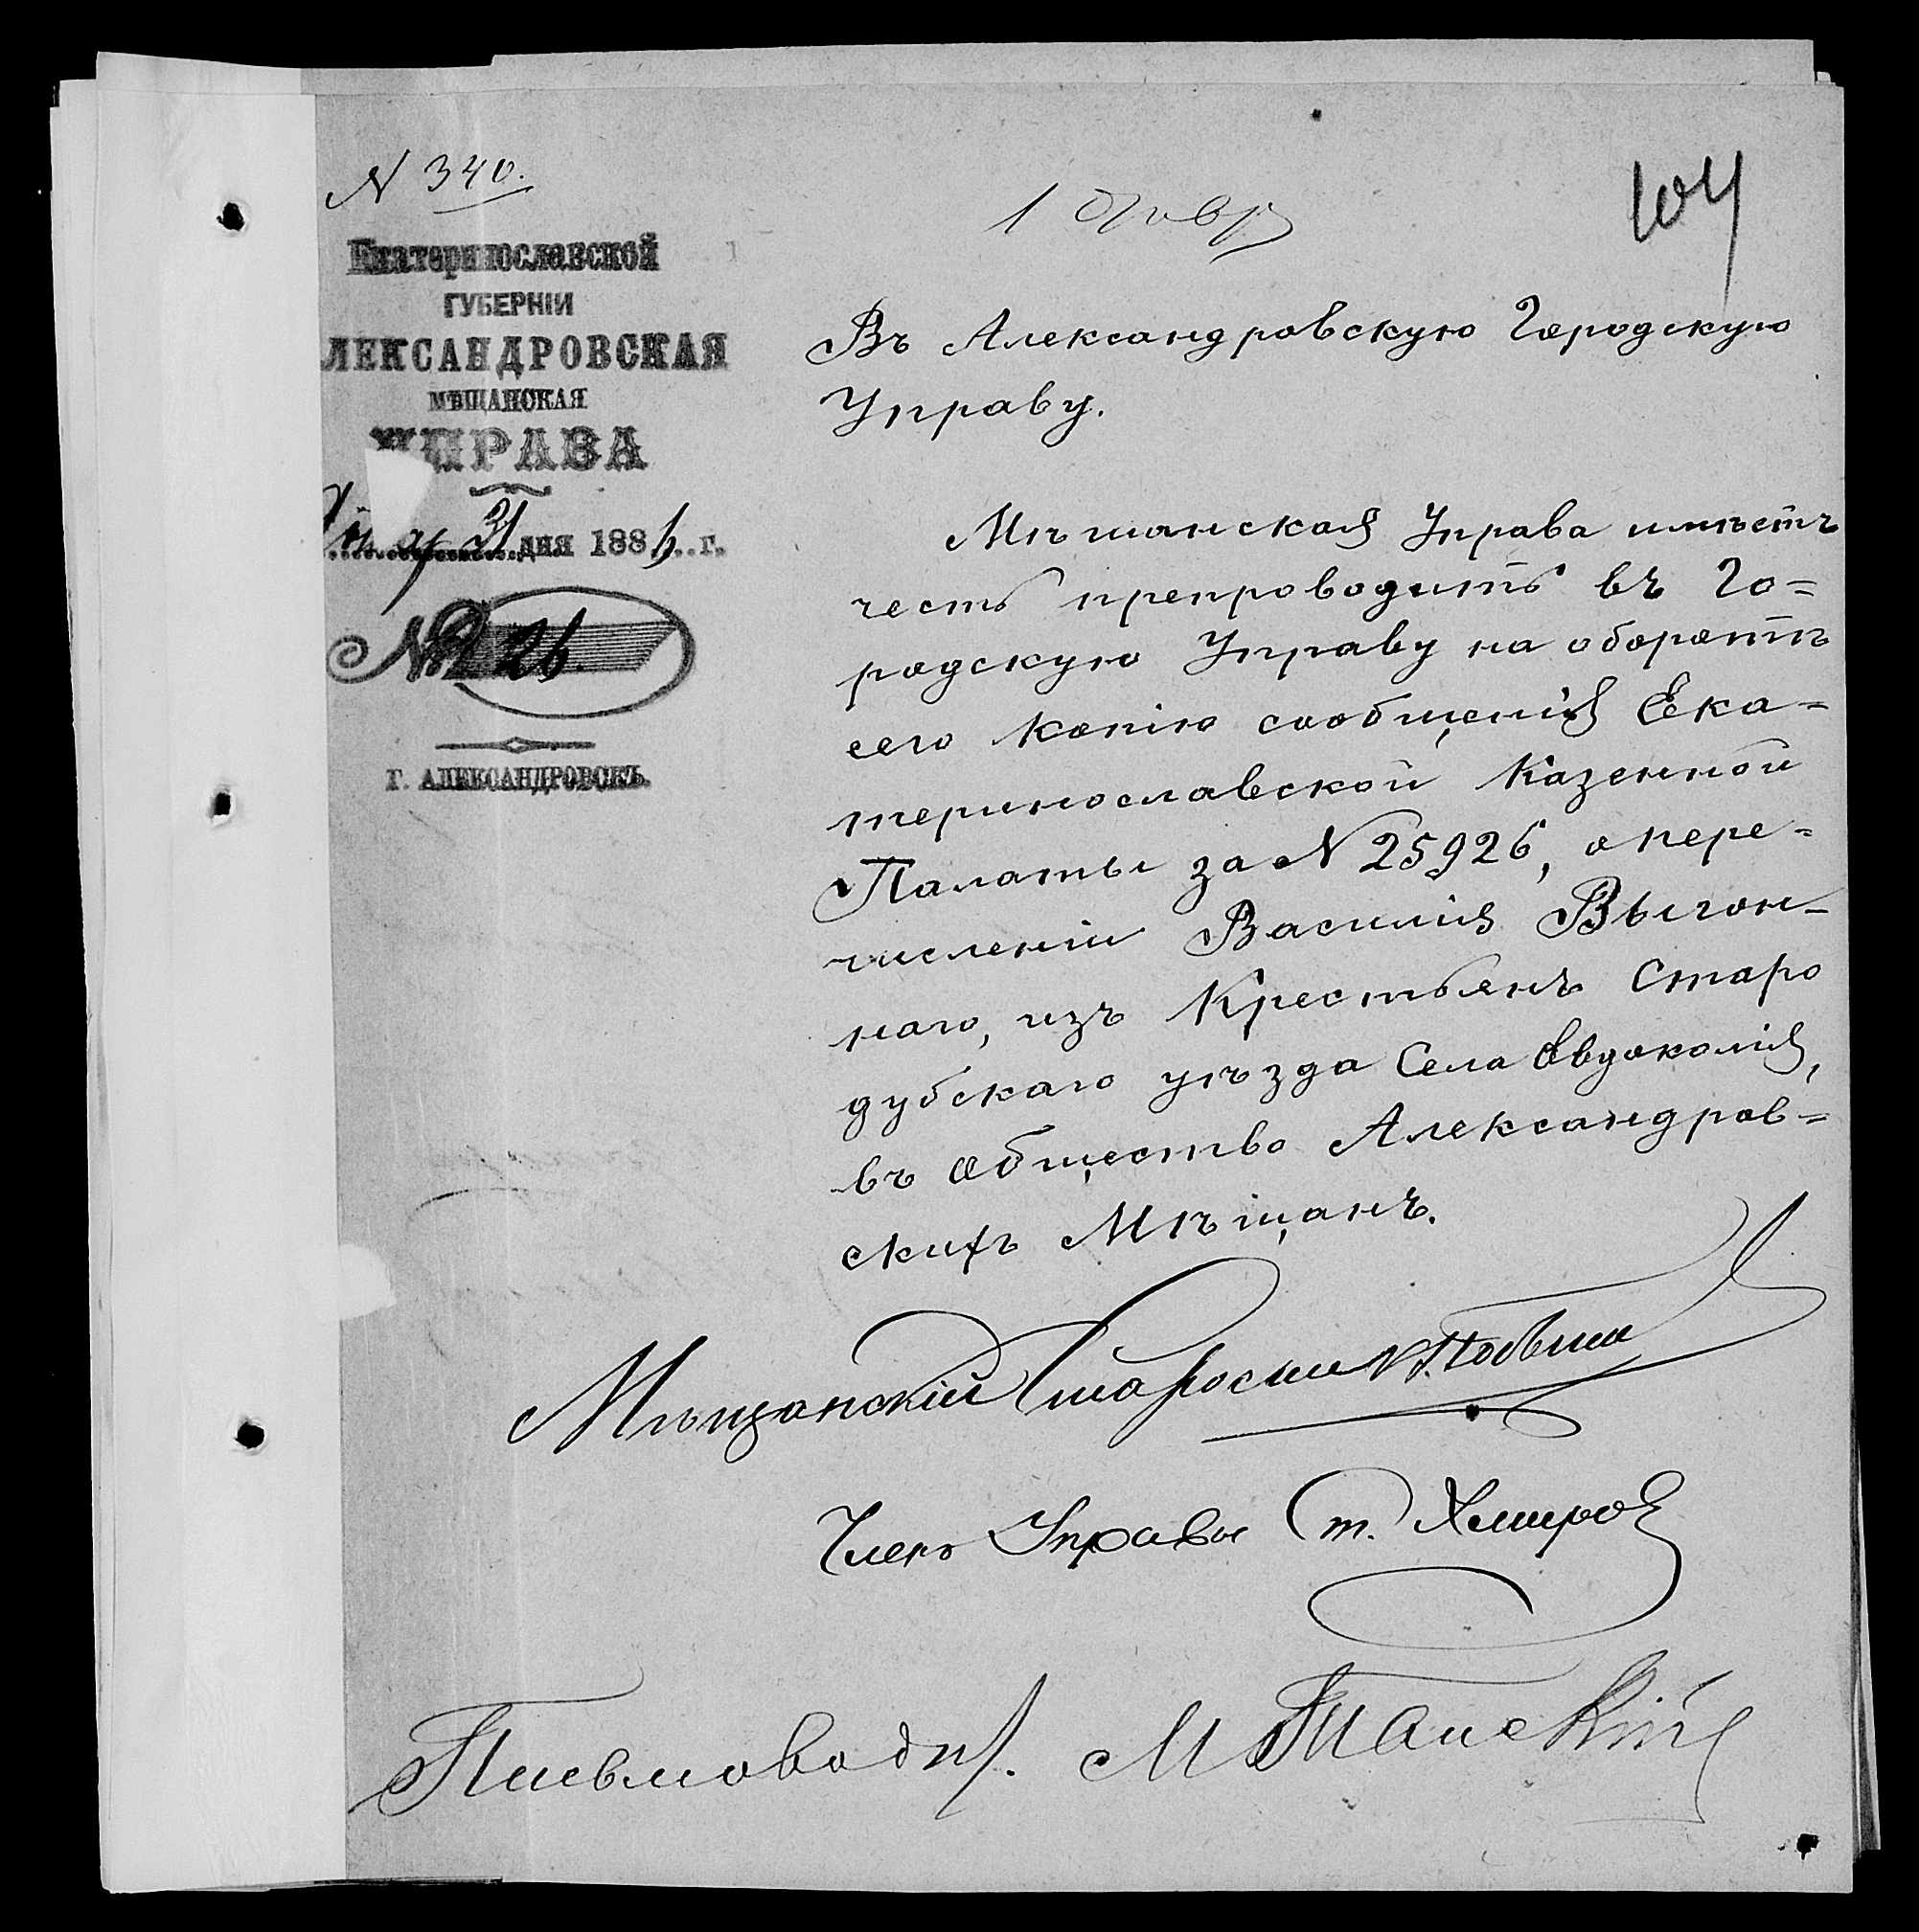 N 340.
1 Февр
104
Екатеринославской
ГУБЕРНІИ
ЛЕКСАНДРОВСКАЯ
МѢЩАНСКАЯ
УПРАВА
31 дня 188 г.
№ 26.
г. АЛЕКСАНДРОВСКЪ.
Въ Александровскую Городскую
Управу.
Мѣщанская Управа имѣетъ
честь препроводить въ Го=
родскую Управу на оборотѣ
сего копію сообщенія Ека=
теринославской Казенной
Палаты за N 25926, о пере=
численіи Василія Выгон-
наго, изъ Крестьянъ Старо
дубскаго уѣзда Села
въ Общество Александров=
скихъ Мѣщанъ.
Мѣщанскій Староста
Членъ Управы
Письмовод.